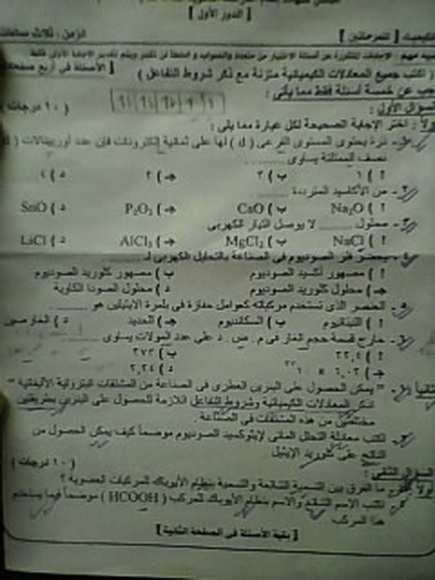 [ الدور الأول ]
الكيمياء [ للمرحلتين ] الزمن : ثلاث ساعات
( اكتب جميع المعادلات الكيميائية متزنة مع ذكر شروط التفاعل ) [ الأسئلة فى أربع صفحات
أجب عن خمسة أسئلة فقط مما يأتى :
السؤال الأول : ( ١٠ درجات )
أولاً : اختر الإجابة الصحيحة لكل عبارة مما يلى :
١- ذرة يحتوى المستوى الفرعى ( d ) لها على ثمانية إلكترونات فإن عدد أوربيتالات ( d )
نصف الممتلئة يساوى ........
أ ) ١ ب ) ٣ جـ ) ٢ د ) ٤
٢- من الأكاسيد المترددة ........
أ ) Na₂O ب ) CaO جـ ) P₂O₃ د ) SnO
٣- محلول ........ لا يوصل التيار الكهربى
أ ) NaCl ب ) MgCl₂ جـ ) AlCl₃ د ) LiCl
٤- يحضر فلز الصوديوم فى الصناعة بالتحليل الكهربى لـ ........
أ ) مصهور أكسيد الصوديوم ب ) مصهور كلوريد الصوديوم
جـ ) محلول كلوريد الصوديوم د ) محلول الصودا الكاوية
٥- العنصر الذى تستخدم مركباته كعوامل حفازة فى بلمرة الايثيلين هو ........
أ ) التيتانيوم ب ) السكانديوم جـ ) الحديد د ) الخارصين
٦- خارج قسمة حجم الغاز فى م . ض . د على عدد المولات يساوى ........
أ ) ٢٢,٤ ب ) ٢٧٣
جـ ) ٦,٠٢ × ١٠ ٢٣ د ) ٢,٢٤
ثانياً ١- " يمكن الحصول على البنزين العطرى فى الصناعة من المشتقات البترولية الأليفاتية "
اذكر المعادلات الكيميائية وشروط التفاعل اللازمة للحصول على البنزين بطريقتين
مختلفتين من هذه المشتقات فى الصناعة .
٢- اكتب معادلة التحلل المائى لإيثوكسيد الصوديوم موضحاً كيف يمكن الحصول من
الناتج على كلوريد الإيثيل
السؤال الثانى : ( ١٠ درجات )
أولاً ما الفرق بين التسمية الشائعة والتسمية بنظام الأيوباك للمركبات العضوية ؟
اكتب الاسم الشائع والاسم بنظام الأيوباك للمركب ( HCOOH ) موضحاً فيما يستخدم
هذا المركب
[ بقية الأسئلة فى الصفحة الثانية ]